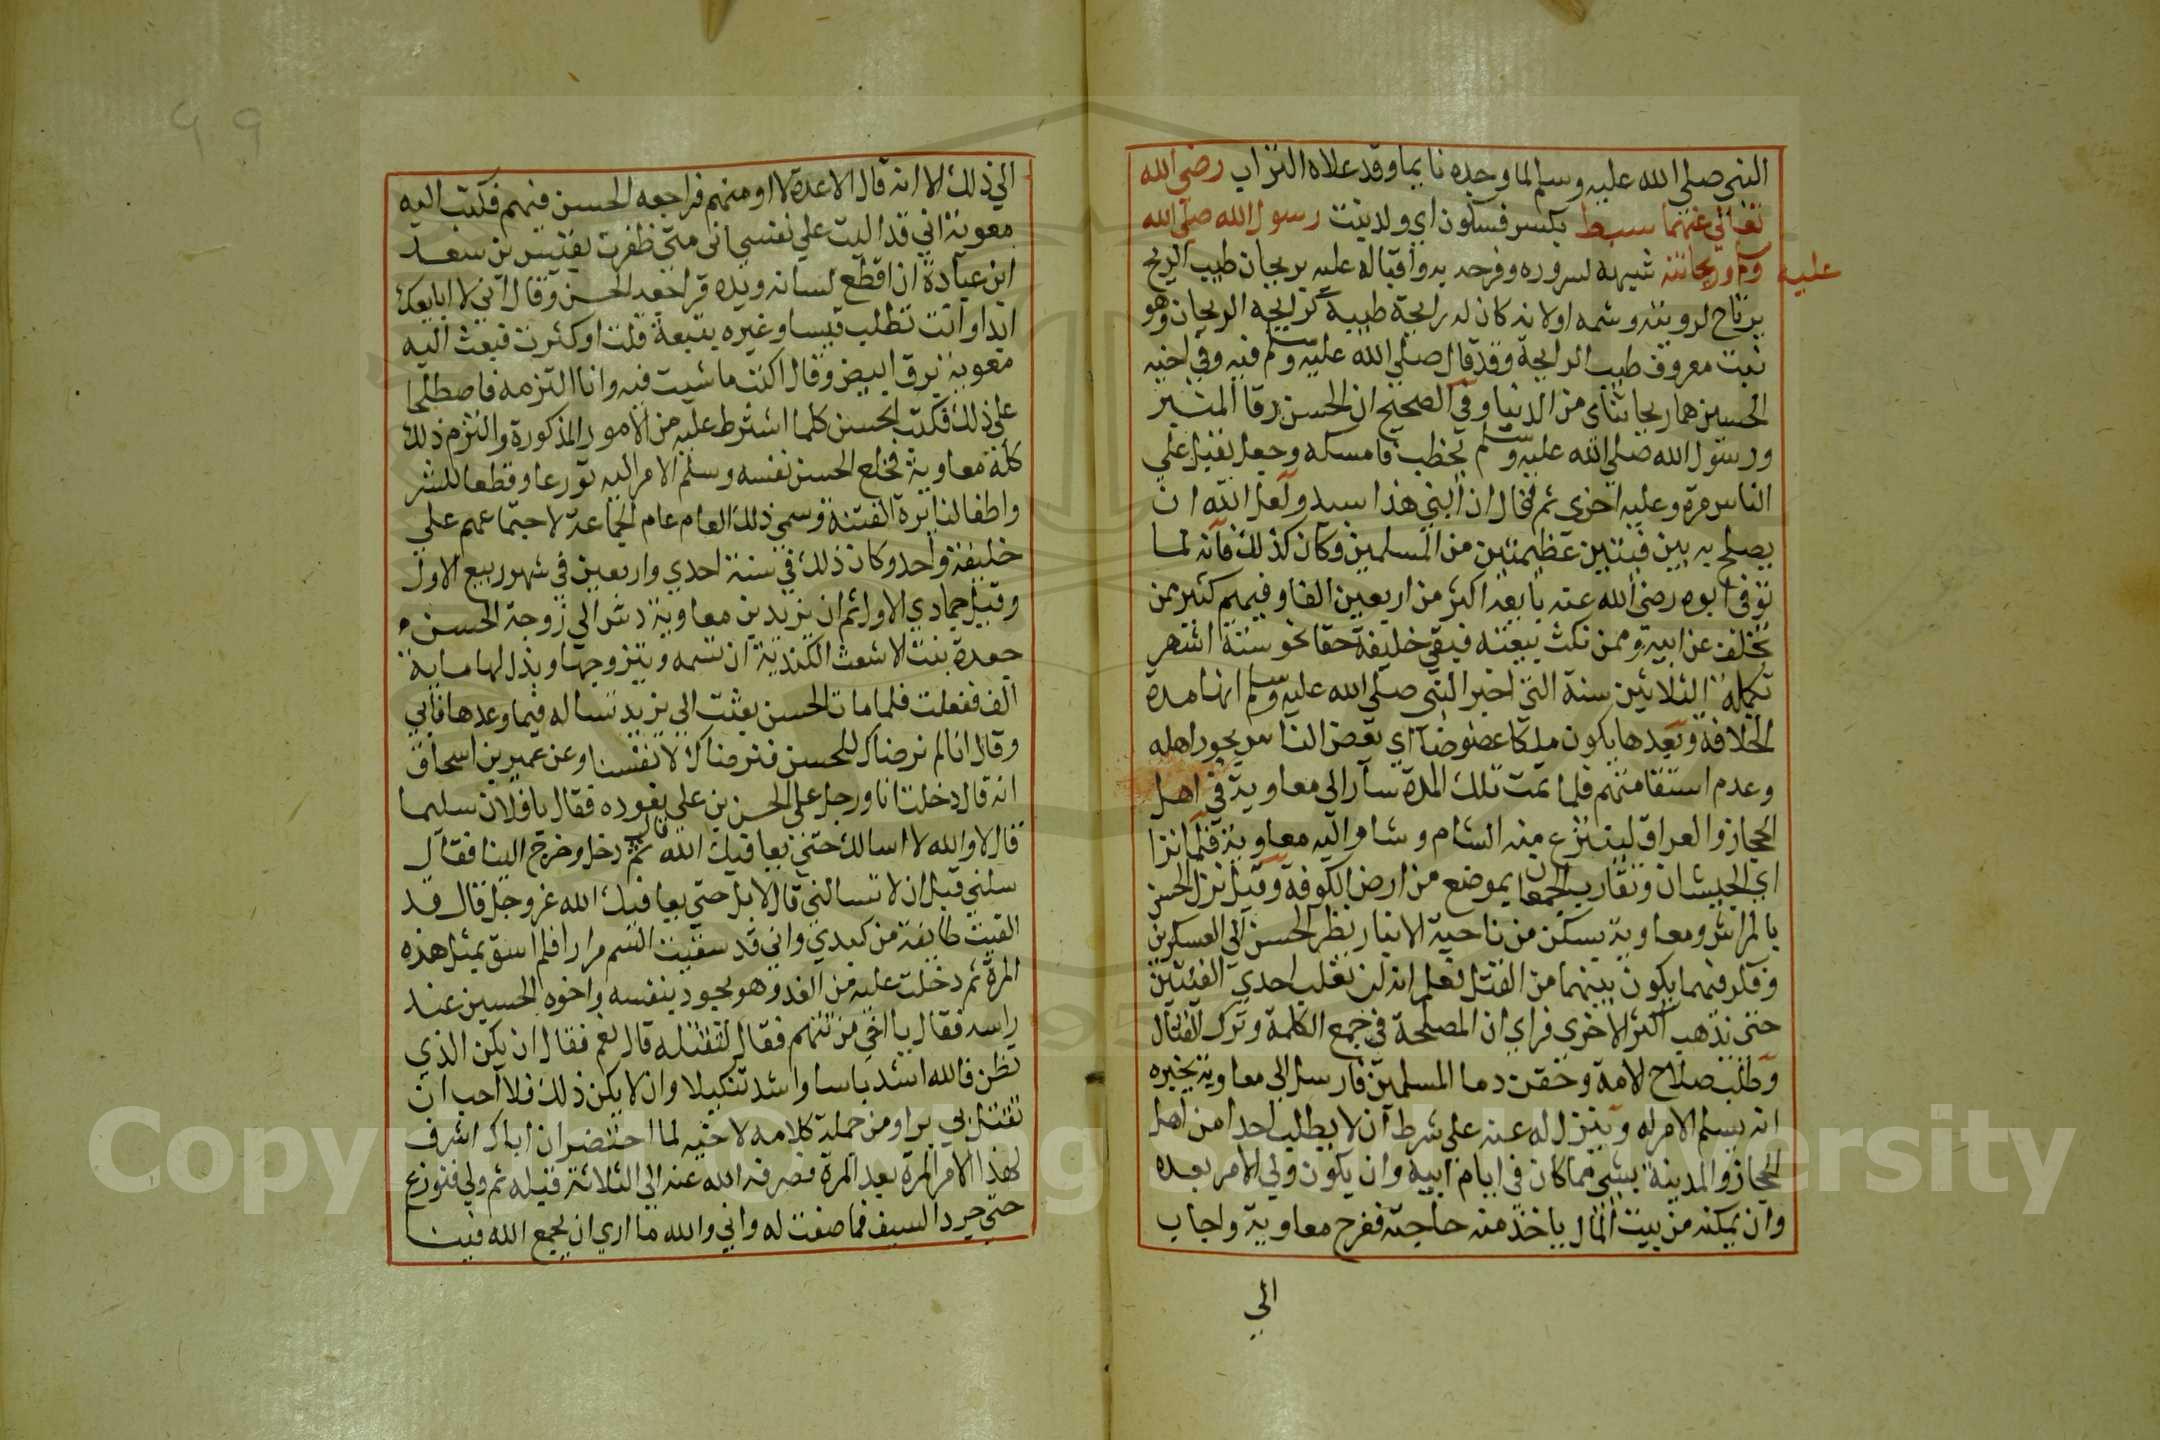 النبي صلي الله عليه وسلم لما وجده نايما وقد علاه التراب رضي الله
تعالي عنهما سبط بكسر فسكون اي ولد بنت رسول الله صلي الله
عليه وسلم وريحانته شبهه لسروره وفرحه به واقباله عليه بريحان طيب الريح
يرتاح لرويته وشمه اولانه كان له رايحة طيبة كرايحه الريحان وهو
نبت معروف طيب الرايحة وقد قال صلي الله عليه وسلم فيه وفي اخيه
الحسين هما ريحانتاي من الدنيا وفي الصحيح ان الحسن رقا المنبر
ورسول الله صلي الله عليه وسلم يخطب فامسكه وجعل يقبل علي
الناس مرة وعليه اخري ثم قال ان ابني هذا سيد ولعل الله ان
يصلح به بين فيتين عظيمتين من المسلمين وكان كذلك فانه لما
توفي ابوه رضي الله عنه بايعه اكثر من اربعين الفا وفيهم كثير من
تخلف عن ابيه وممن نكث بيعته فبقي خليفة حقا نحو ستة اشهر
تكملة الثلاثين سنة التي اخبر النبي صلي الله عليه وسلم انها مدة
الخلافة وبعدها يكون ملكا عضوضا اي بعض الناس بجور اهله
وعدم استقامتهم فلما تمت تلك المدة سار الي معاوية في اهل
الحجاز والعراق لينتزع منه الشام وسار اليه معاوية فلما نزا
اي الجيشان وتقارب الجمعان بموضع من ارض الكوفة وقيل نزل الحسن
بالمراس ومعاوية بسكن من ناحية الانبار نظر الحسن الي العسكرين
وفكر فيهما يكون بينهما من القتل فعلم انه لن تغلب احدي الفئتين
حتي تذهب اكثر الاخري فراي ان المصلحة في جمع الكلمة وترك القتال
وطلب صلاح لامة وحقن دما المسلمين فارسل الي معاوية يخبره
انه يسلم الامر له وينزل له عنه علي شرط ان لا يطلب احدا من اهل
الحجاز والمدينة بشي مما كان في ايام ابيه وان يكون ولي الامر بعده
وان يمكنه من بيت المال ياخذ منه حاجته ففرح معاوية واجاب
الي
الي ذلك الا انه قال الا عدة لا اومنهم فراجعه الحسن فيهم فكتب اليه
معوية اني قد اليت علي نفسي اني متي ظفرت بقيس بن سعد
ابن عبادة ان اقطع لسانه ويده فراجعه الحسن وقال اني لا ابايعك
ابدا وانت تطلب قيسا وغيره بتبعة قلت او كثرت فبعث اليه
معوية برق ابيض وقال اكتب ما شيت فيه وانا التزمه فاصطلحا
علي ذلك فكتب الحسن كلما اشترط عليه من الامور المذكورة والتزم ذلك
كلة معاوية فخلع الحسن نفسه وسلم الامر اليه تورعا وقطعا للشر
واطفا لنايرة الفتنة وسمي ذلك العام عام الجماعة لاجتماعهم علي
خليفة واحد وكان ذلك في سنة احدي واربعين في شهور ربيع الاول
وقيل جمادي الاول ثم ان يزيد بن معاوية دس الي زوجة الحسن
جعدة بنت الاشعث الكندية ان تسمه ويتزوجها وبذل لها ماية
الف ففعلت فلما مات الحسن بعثت الي يزيد تساله فيما وعدها فابي
وقال انا لم نرضاك للحسن فنرضاك لانفسنا وعن عمير بن اسحاق
انه قال دخلت انا ورجل علي الحسن بن علي يعوده فقال يا فلان سليما
قال لا والله لا اسالك حتي يعافيك الله قال ثم دخل وخرج الينا فقال
سلني قبل ان لا تسالني قال لا بل حتي يعافيك الله عز وجل قال قد
القيت طايفة من كبدي واني قد سقيت السم مرارا فلم اسق بمثل هذه
المرة ثم دخلت عليه من الغد وهو يجود بنفسه واخوه الحسين عند
راسه فقال يا اخي من تتهم فقال لتقتله قال نعم فقال ان يكن الذي
تظن فالله اشد باسا واشد تنكيلا وان لا يكن ذلك فلا احب ان
تقتل بي برا ومن جملة كلامه لاخيه لما احتضر ان اباك اشرف
لهذا الامر المرة بعد المرة فصرفه الله عنه الي الثلاثة قبله ثم ولي فنوزع
حتي جرد السيف فما صفت له واني والله ما اري ان يجمع الله فينا